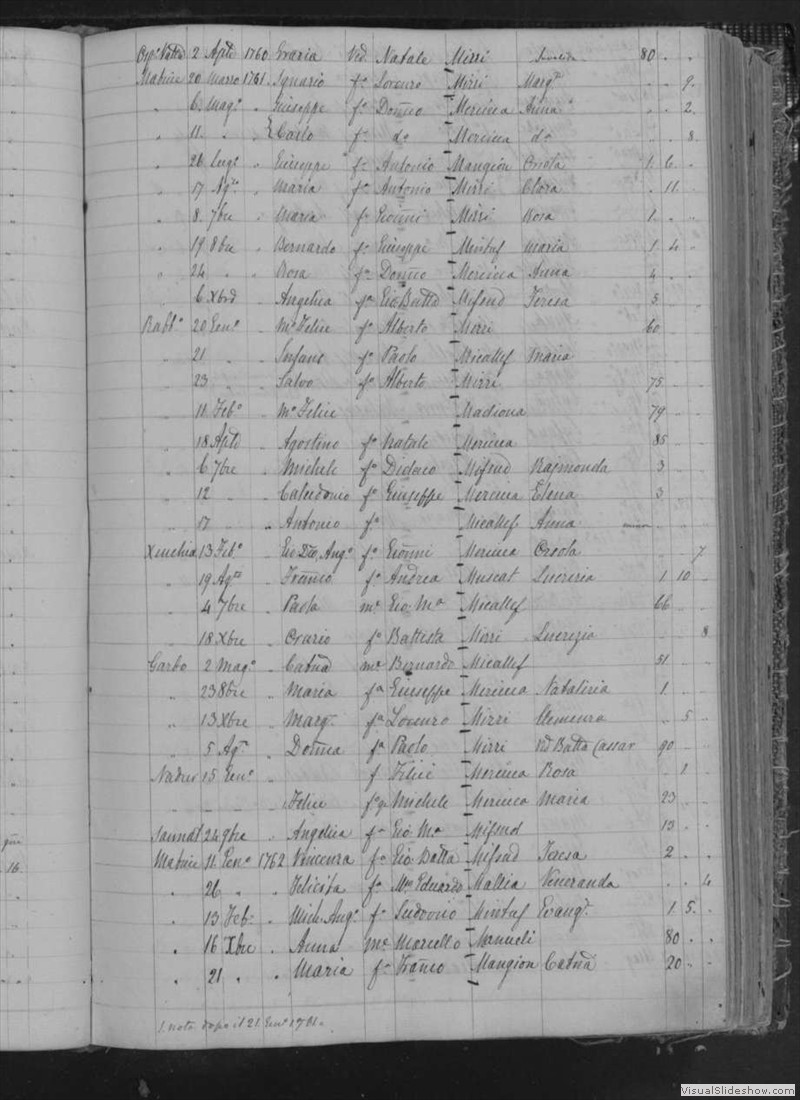 2 Aple 1760 Grazia Ved. Natale Mirri 80 . .
Matrice 20 Marzo 1761. Ignazio fo Lorenzo Mirri Margta . . 9.
" 6. Mago " Giuseppe fo Domco Mercieca Anna . . 2.
" 11. " " Carlo fo do Mercieca do . . 8.
" 26 Lugo " Giuseppe fo Antonio Mangion Orsola 1. 6. .
" 17 Ago " Maria fa Antonio Mirri Clara . 11. .
" 8. 7bre " Maria fa Gioanni Mirri Rosa 1. . .
" 19 8bre " Bernardo fo Giuseppe Mintuf Maria 1 4 .
" 24 " " Rosa fa Domco Mercieca Anna 4 . .
" 6 Xbre " Angelica fa Gio Batta Mifsud Teresa 3 . .
Rabbo 20 Geno " Mo Felice fo Alberto Mirri 60 . .
" 21 " Infans fo Paolo Micallef Maria
" 23 " Salvo fo Alberto Mirri 75 . .
" 11 Febo " Mo Felice Madiona 79 . .
" 18 Aple " Agostino fo Natale Mercieca 85 . .
" 6 7bre " Michele fo Didaco Mifsud Raimonda 3 . .
" 12 " Calcidonio fo Giuseppe Mercieca Elena 3 . .
" 17 " Antonio fo Micallef Anna
Xeuchia 13 Febo " Gio Dco Ango fo Gioanni Mercieca Orsola . . 7
" 19 Ago " Franco fo Andrea Muscat Lucrezia 1 10 .
" 4 7bre " Paola me Gio Ma Micallef 66 . .
" 18 Xbre " fo Battista Mirri Lucrezia . . 8
Garbo 2 Mago " Catna me Bernardo Micallef 51 . .
" 23 8bre " Maria fa Giuseppe Mercieca Natalizia 1 . .
" 13 Xbre " Margta fa Lorenzo Mirri Clemenza . 5 .
" 5 Ago " Domca fa Paolo Mirri Vd Batta Cassar 90 . .
Nadur 15 Geno " f Felice Mercieca Rosa . 1 .
" " " Felice fo q Michele Mercieca Maria 23 . .
Sannat 24 9bre " Angelica fa Gio Ma Mifsud 13 . .
Matrice 11 Geno 1762 Vincenza fa Gio Batta Mifsud Teresa 2 . .
" 26 " " Felicita fa Mro Eduardo Mallia Veneranda . . 4
" 13 Feb. " Mich. Ango fo Ludovico Mintuf Evangta 1 5. .
" 16 Xbre " Anna me Marcello Manueli 80 . .
" 21 " " Maria fa Franco Mangion Catna 20 . .
1. nota dopo il 21 Geno 1761.
VisualSlideshow.com